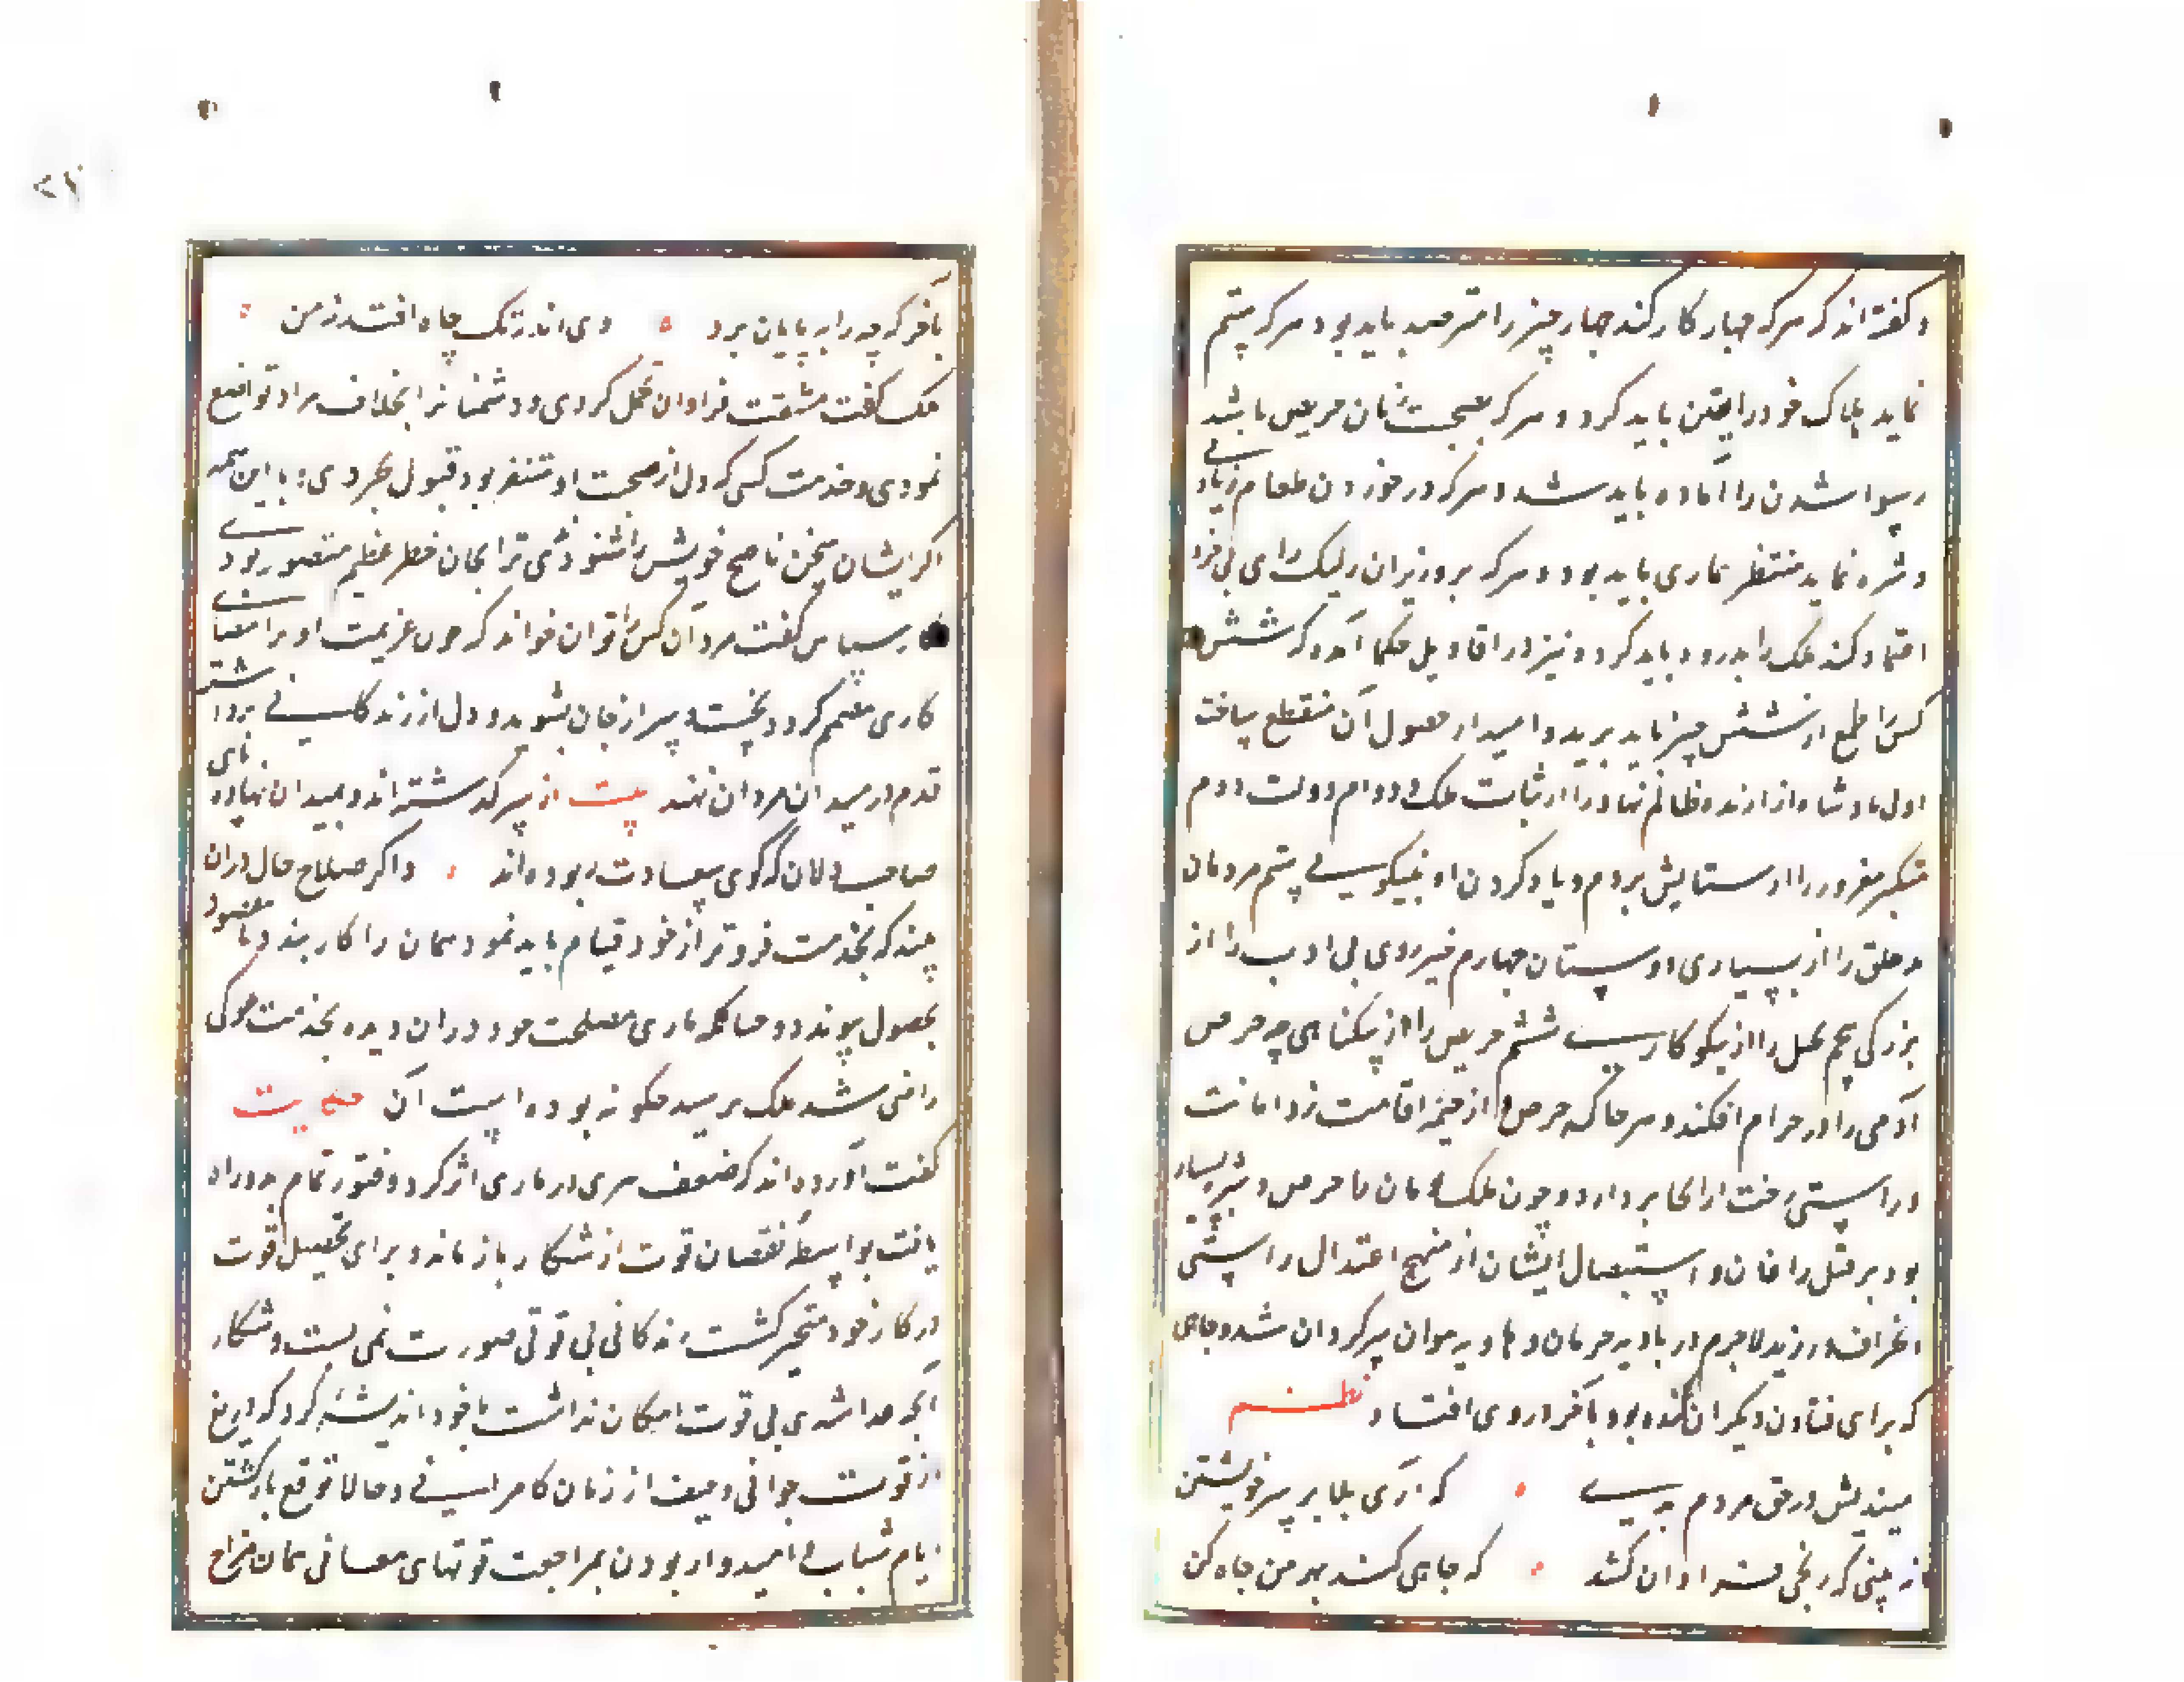 و گفته‌اند که هرکه چهار کار کند چهار چیز را مترصد باید بود هرکه ستم
نماید هلاک خود را یقین باید کرد و هرکه بصحبت زنان حریص باشد
رسوا شدن را آماده باید شد و هرکه در خوردن طعام زیادتی
و شره نماید منتظر بیماری باید بود و هرکه بر وزیران رکیک رای بی خرد
اعتماد کند ملک را بدرود باید کرد و نیز در اقاویل حکما آمده که شش
کس را طمع از شش چیز باید برید و امید از حصول آن منقطع ساخت
اول پادشاه ظالم نهاد را از ثبات ملک و دوام دولت دوم
متکبر مغرور را از ستایش مردم و یاد کردن او بنیکویی سیم مردمان
بد خلق را از بسیاری دوستان چهارم خیره روی بی ادب را از
بزرگی پنجم بخیل را از نیکوکاری ششم حریص را از بیگناهی چه حرص
آدمی را در حرام افکند و هرجا که حرص از خیمه اقامت زد امانت
و راستی رخت از آنجا بردارد و چون ملک زمان را حرص و شره بسیار
بود بر قتل زاغان و استیصال ایشان از منهج اعتدال و راستی
انحراف ورزید لاجرم در بادیه حرمان و هاویه هوان سرگردان شد و چاهی
که برای فتادن دیگران کنده بود بآخر در وی افتاد نظم
میندیش در حق مردم بدی که آری بلا بر سر خویشتن
نه بینی که رنجی فراوان کشد که چاهی کند بهر من چاه کن
بآخر که چه را به پایان برد وی اندر تک چاه افتد نه من
ملک گفت مشقت فراوان تحمل کردی و دشمنان را بخلاف مراد تواضع
نمودی و خدمت کسی که دل از صحبت او متنفر بود قبول کردی با این همه
اگر ایشان سخن ناصح خویش را شنودندی ترا بجان خطر عظیم متصور بودی
کارسیاس گفت مرد آن کس را توان خواند که چون عزیمت او بر امضای
کاری مصمم گردد نخست دست از جان بشوید و دل از زندگانی برداشته
قدم در میدان مردان نهد بیت از سر گذشته‌اند و بمیدان نهاده پای
صاحب دلان که گوی سعادت ربوده‌اند و اگر صلاح حال در آن
بیند که بخدمت فروتر از خود قیام باید نمود همان را کار بندد تا مقصود
بحصول پیوندد چنانکه ماری مصلحت خود در آن دیده بخدمت غوکی
راضی شد ملک پرسید چگونه بوده است آن حکایت
گفت آورده‌اند که ضعف پیری در ماری اثر کرد و فتور تمام بدو راه
یافت بواسطه نقصان قوت از شکار باز ماند و برای تحصیل قوت
در کار خود متحیر گشت زندگانی بی قوتی صورت نمی بست و شکار
بی قوت امکان نداشت با خود اندیشه کرد که دریغ
از قوت جوانی و حیف از زمان کامرانی و حالا توقع بازگشتن
ایام شباب و امیدوار بودن بمراجعت قوتهای جسمانی همان مزاج